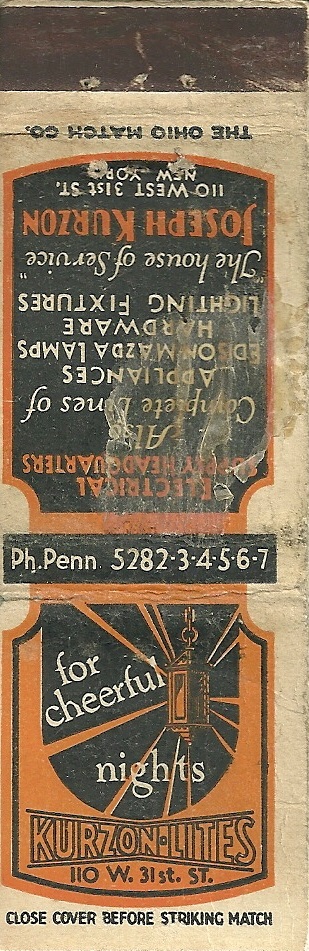 THE OHIO MATCH CO.
ELECTRICAL
SUPPLY HEADQUARTERS
Also
Complete Lines of
APPLIANCES
EDISON MAZDA LAMPS
HARDWARE
LIGHTING FIXTURES
"The house of Service"
JOSEPH KURZON
110 WEST 31st ST.
NEW YORK
Ph. Penn. 5282-3-4-5-6-7
for
cheerful
nights
KURZON-LITES
110 W. 31st. ST.
CLOSE COVER BEFORE STRIKING MATCH